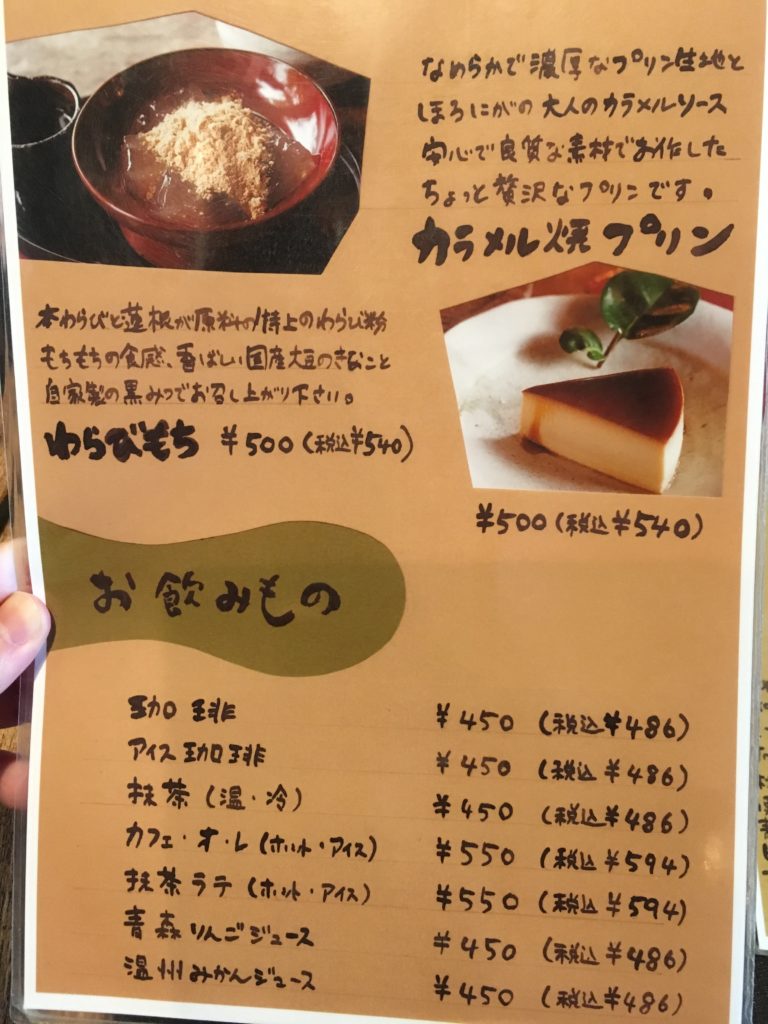 なめらかで濃厚なプリン生地と
ほろにがの大人のカラメルソース
安心で良質な素材でお作した
ちょっと贅沢なプリンです。
カラメル焼プリン
¥500(税込¥540)
本わらびと蓮根が原料の特上のわらび粉
もちもちの食感、香ばしい国産大豆のきなこと
自家製の黒みつでお召し上がり下さい。
わらびもち ¥500(税込¥540)
お飲みもの
珈琲 ¥450 (税込¥486)
アイス珈琲 ¥450 (税込¥486)
抹茶(温・冷) ¥450 (税込¥486)
カフェ・オ・レ(ホット・アイス) ¥550 (税込¥594)
抹茶ラテ(ホット・アイス) ¥550 (税込¥594)
青森りんごジュース ¥450 (税込¥486)
温州みかんジュース ¥450 (税込¥486)